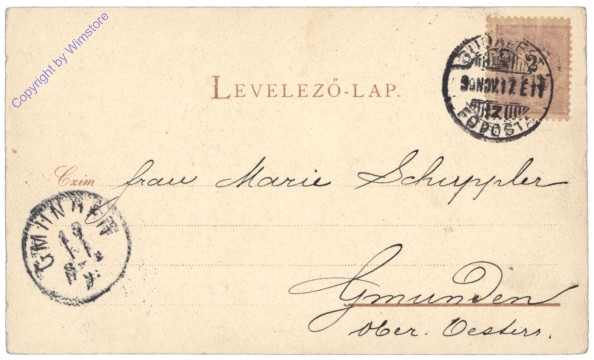 Copyright by Wimstore
LEVELEZŐ-LAP.
BUDAPEST
NOV. 17 E 11
FŐPOSTA
Czim Frau Marie Schuppler
GMUNDEN
Gmunden
Ober. Oesterr.